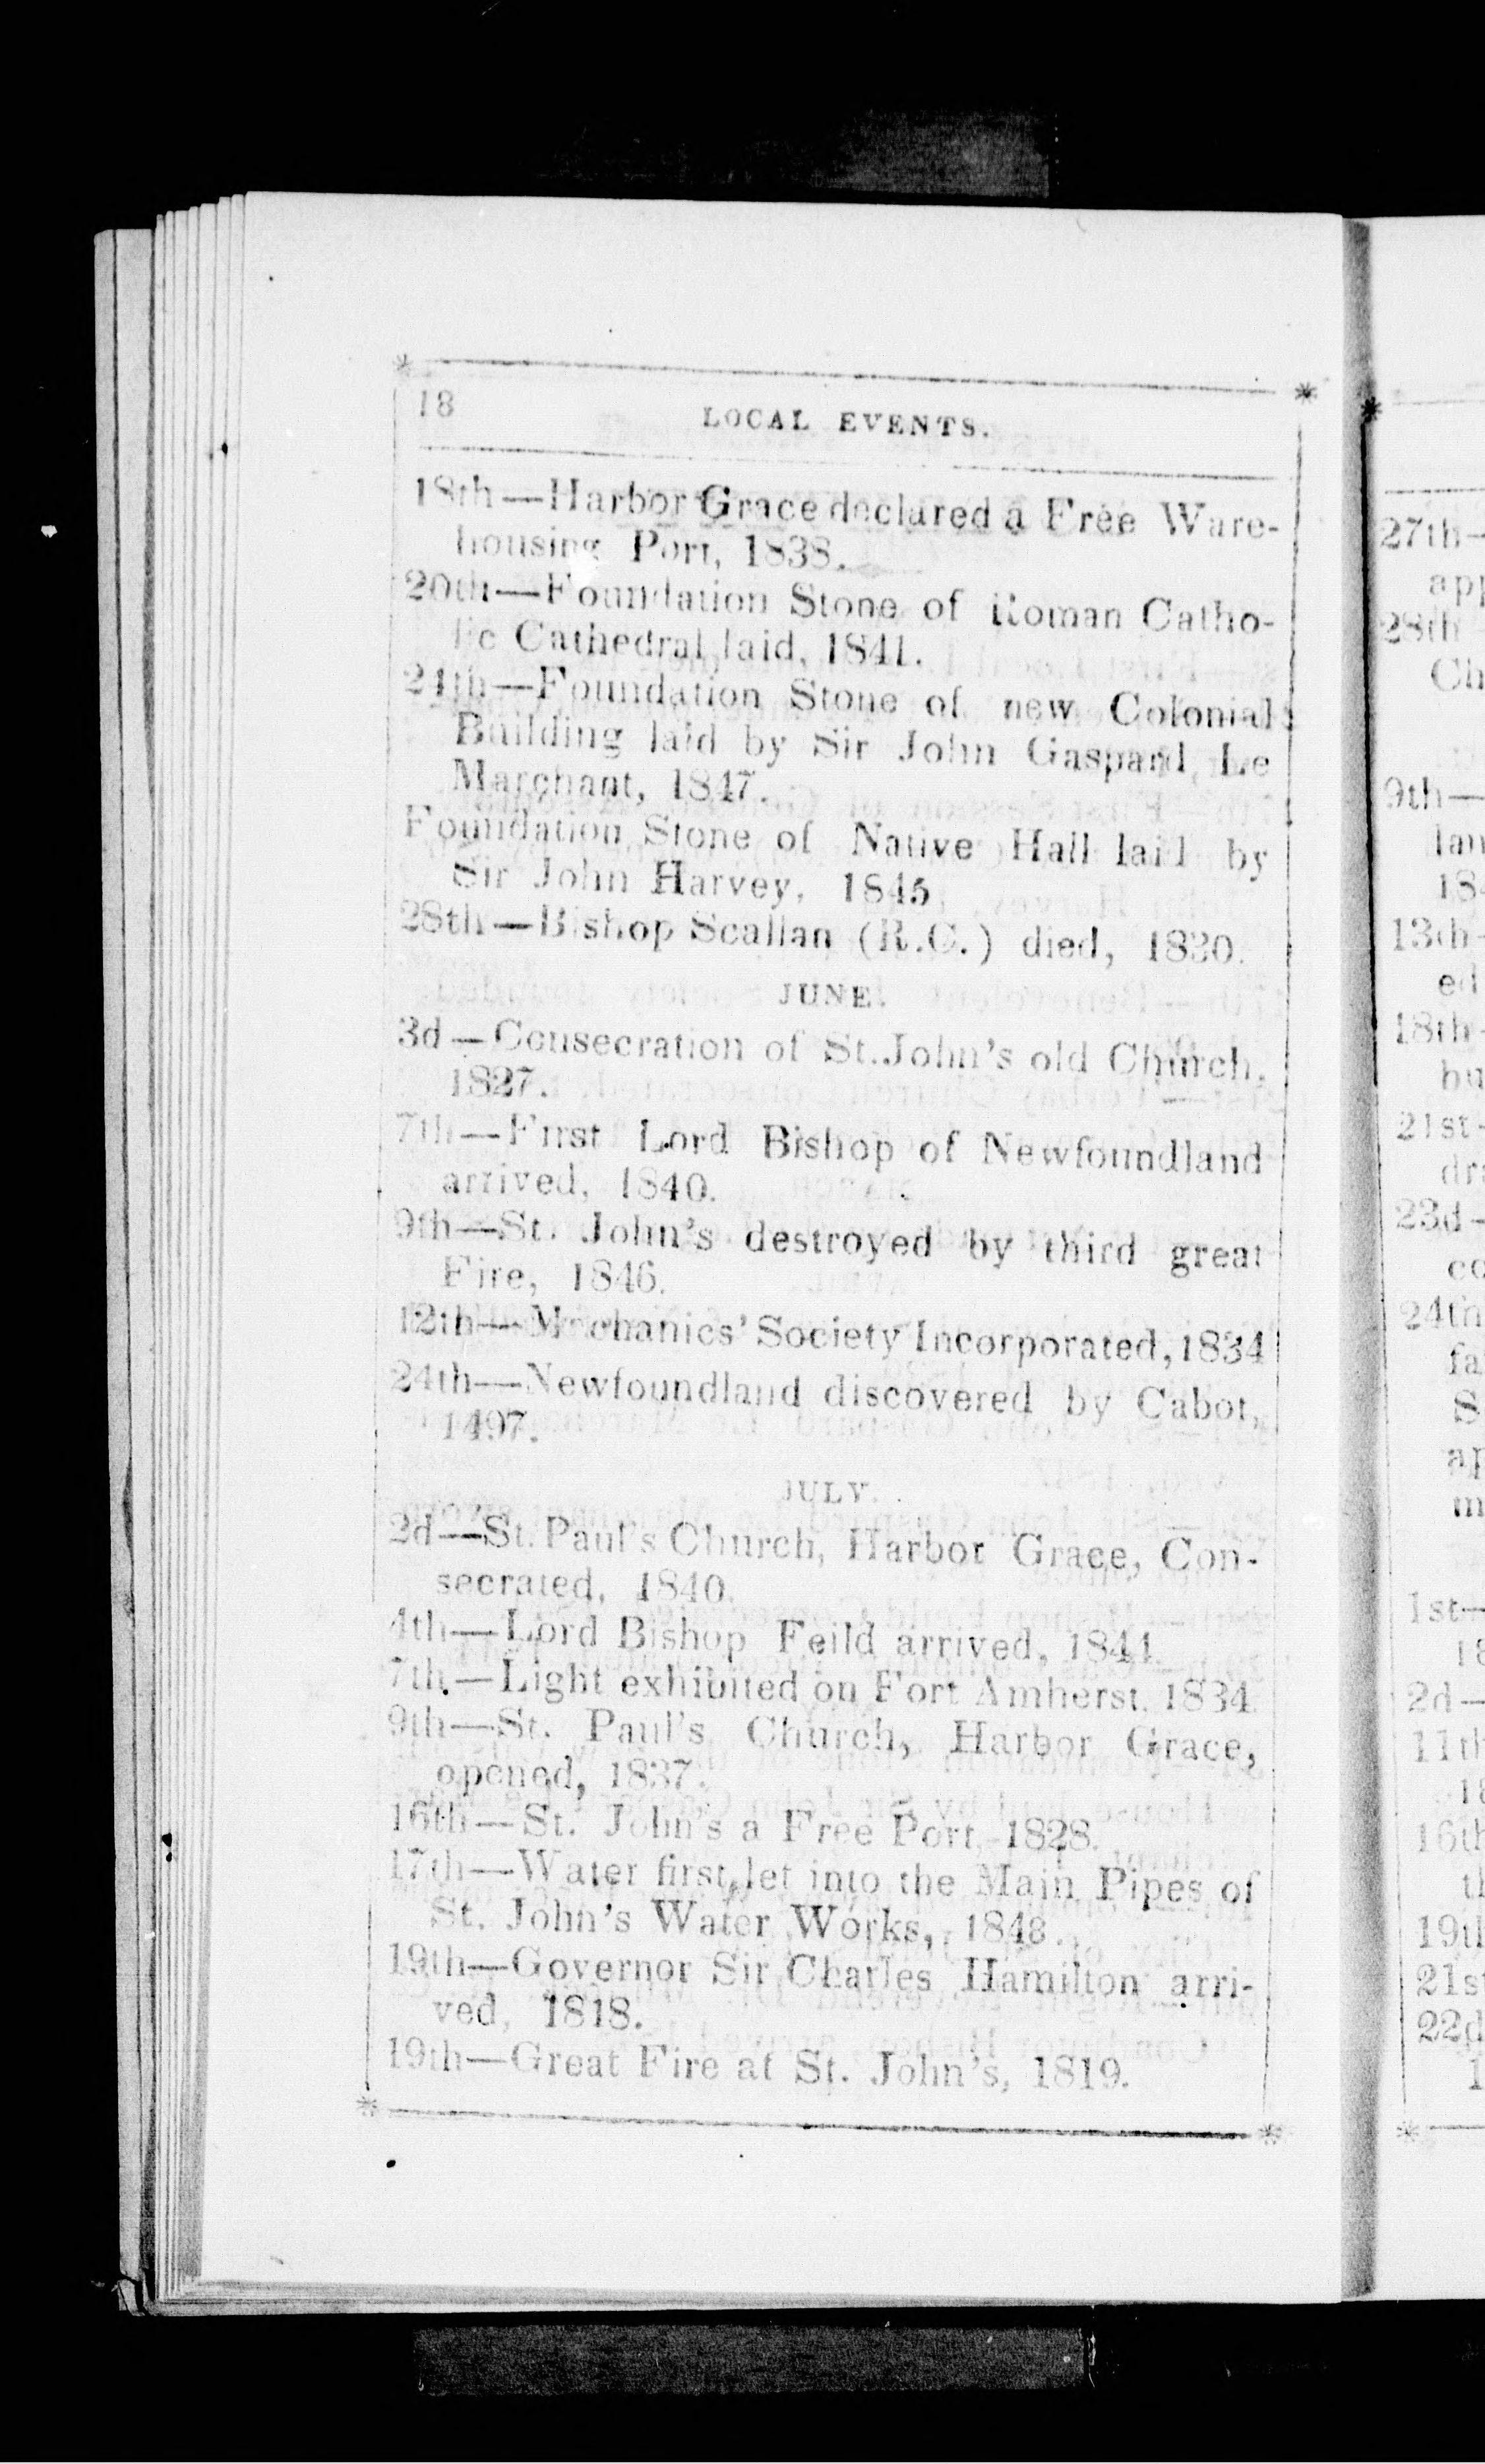 18
LOCAL EVENTS.
18th—Harbor Grace declared a Free Ware-
housing Port, 1838.
20th—Foundation Stone of Roman Catho-
lic Cathedral laid, 1841.
24th—Foundation Stone of new Colonial
Building laid by Sir John Gaspard Le
Marchant, 1847.
Foundation Stone of Native Hall laid by
Sir John Harvey, 1845
28th—Bishop Scallan (R.C.) died, 1830.
JUNE.
3d—Consecration of St. John's old Church,
1827.
7th—First Lord Bishop of Newfoundland
arrived, 1840.
9th—St. John's destroyed by third great
Fire, 1846.
12th—Mechanics' Society Incorporated, 1834
24th—Newfoundland discovered by Cabot,
1497.
JULY.
2d—St. Paul's Church, Harbor Grace, Con-
secrated, 1840.
4th—Lord Bishop Feild arrived, 1844.
7th.—Light exhibited on Fort Amherst, 1834
9th—St. Paul's Church, Harbor Grace,
opened, 1837.
16th—St. John's a Free Port, 1828.
17th—Water first let into the Main Pipes of
St. John's Water Works, 1848.
19th—Governor Sir Charles Hamilton arri-
ved, 1818.
19th—Great Fire at St. John's, 1819.
27th—
app
28th
Ch
9th—
lan
184
13th-
ed
18th-
bu
21st-
dra
23d-
co
24th
fa
S
ap
m
1st—
18
2d—
11th
18
16th
th
19th
21st
22d
1